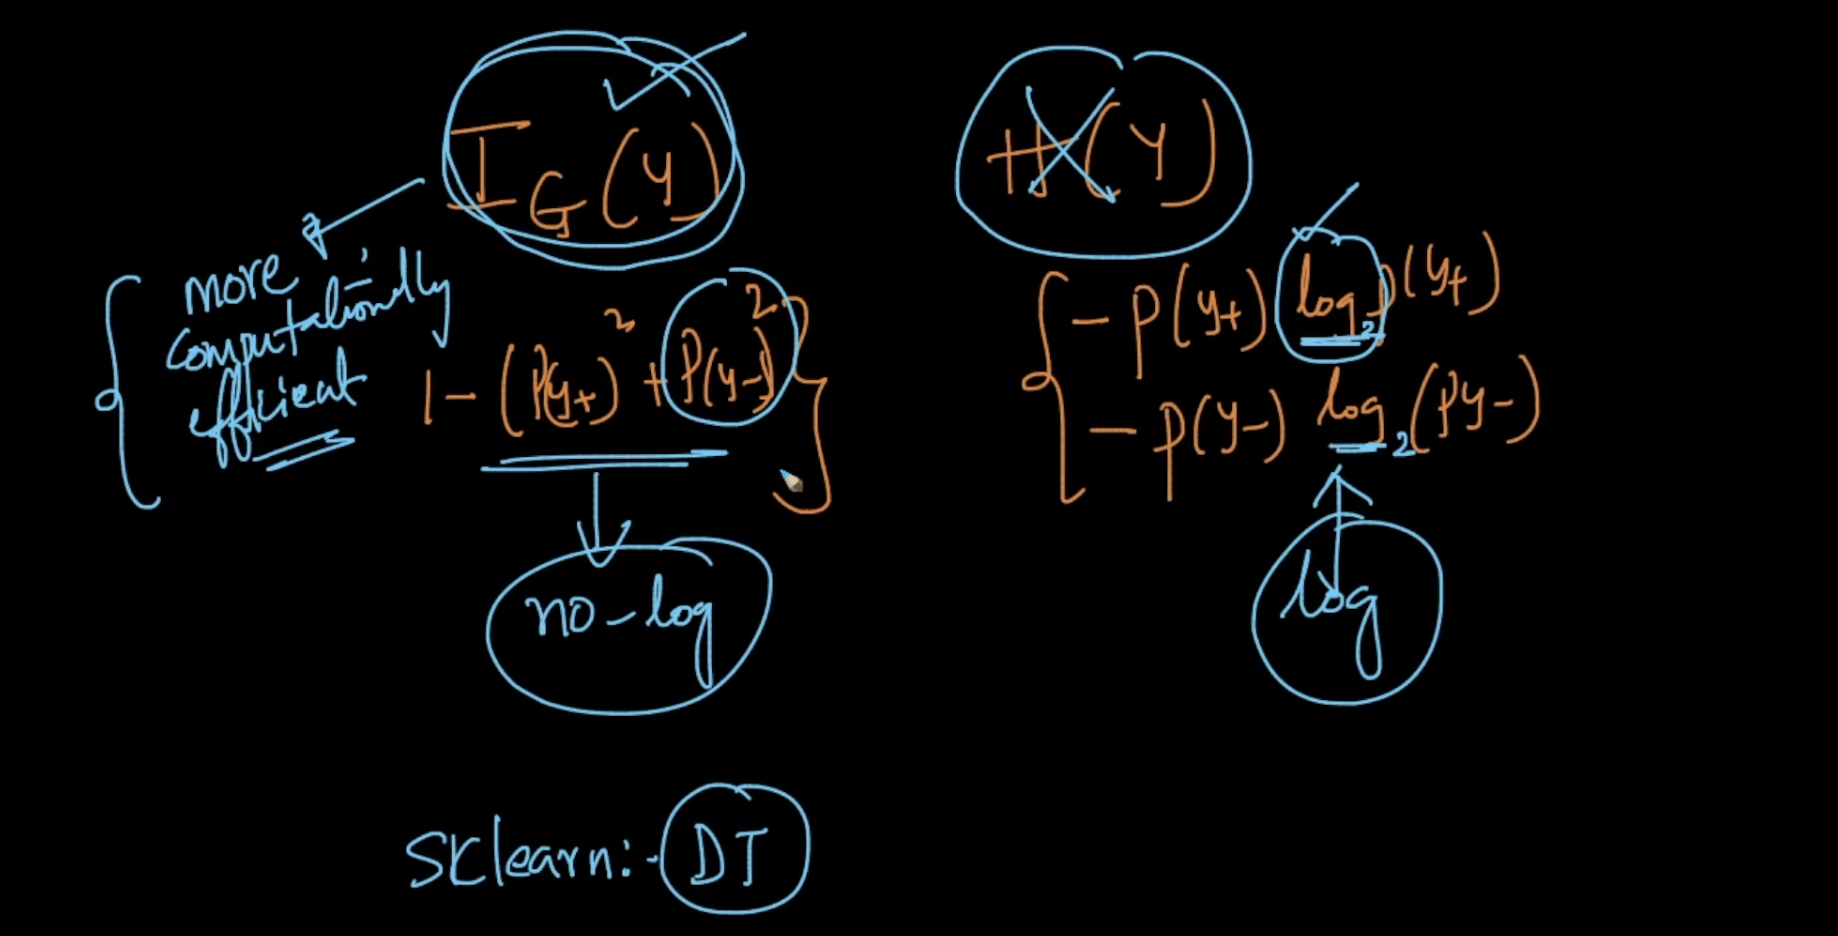 I_G(y)
H(Y)
more
computationally
efficient
1 - (P(y+)² + P(y-)²)
- P(y+) log₂ P(y+)
- P(y-) log₂ (Py-)
no-log
log
SKlearn:- DT